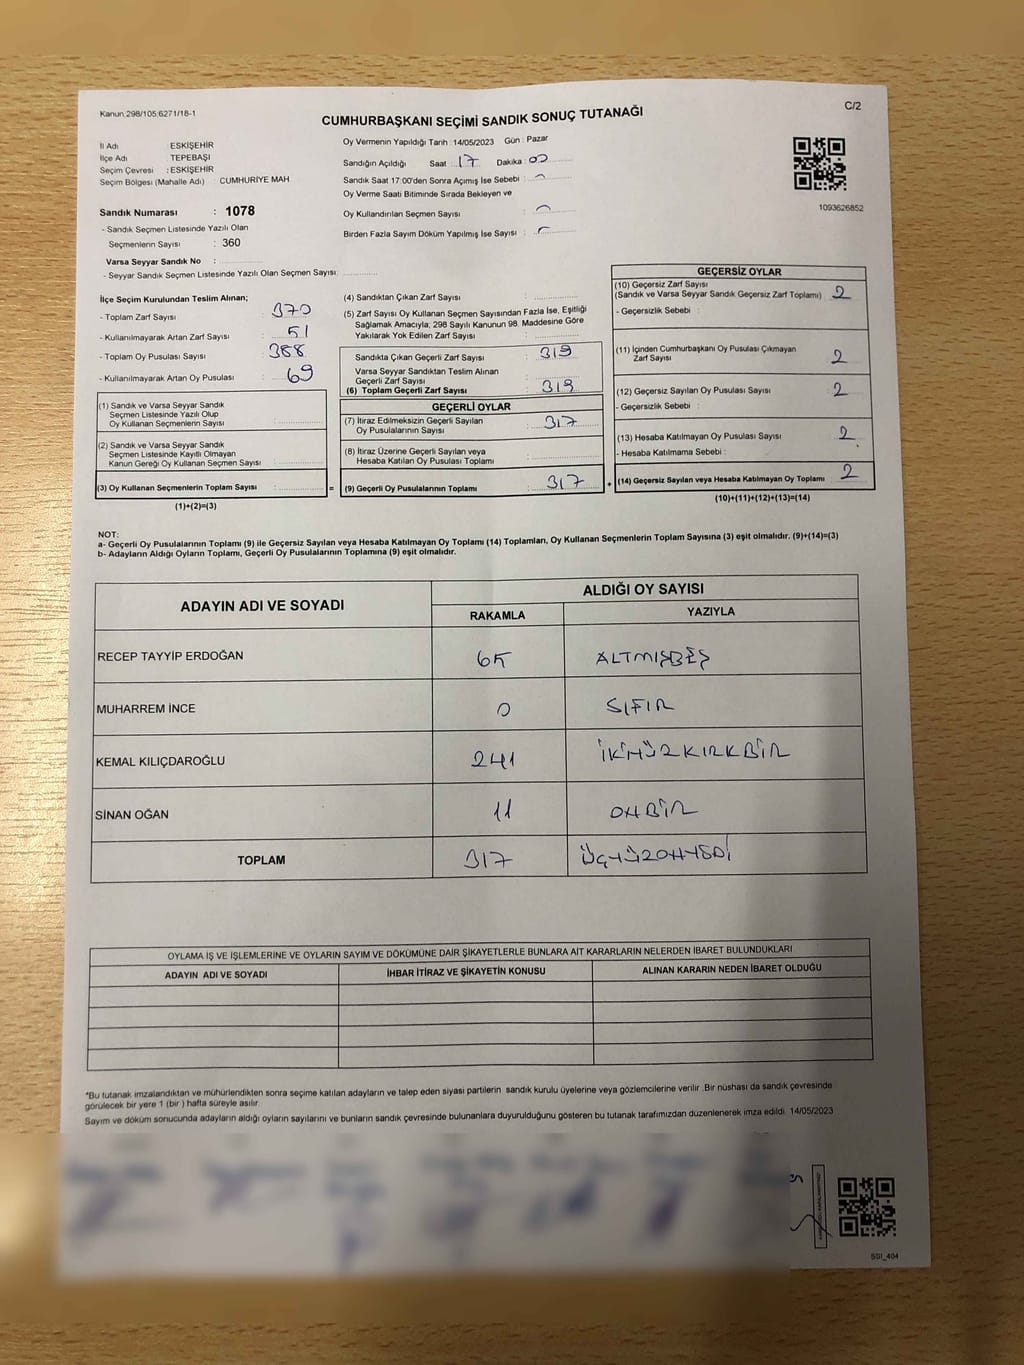 Kanun:298/105;6271/18-1
C/2
CUMHURBAŞKANI SEÇİMİ SANDIK SONUÇ TUTANAĞI
İl Adı ESKİŞEHİR
İlçe Adı TEPEBAŞI
Seçim Çevresi : ESKİŞEHİR
Seçim Bölgesi (Mahalle Adı) CUMHURİYE MAH.
Sandık Numarası : 1078
- Sandık Seçmen Listesinde Yazılı Olan
Seçmenlerin Sayısı : 360
Varsa Seyyar Sandık No :
- Seyyar Sandık Seçmen Listesinde Yazılı Olan Seçmen Sayısı:
Oy Vermenin Yapıldığı Tarih :14/05/2023 Gün : Pazar
Sandığın Açıldığı Saat : 17 Dakika : 00
Sandık Saat 17:00'den Sonra Açımış İse Sebebi :
Oy Verme Saati Bitiminde Sırada Bekleyen ve
Oy Kullandırılan Seçmen Sayısı :
Birden Fazla Sayım Döküm Yapılmış İse Sayısı :
1093626852
İlçe Seçim Kurulundan Teslim Alınan;
- Toplam Zarf Sayısı : 370
- Kullanılmayarak Artan Zarf Sayısı : 51
- Toplam Oy Pusulası Sayısı : 388
- Kullanılmayarak Artan Oy Pusulası : 69
(1) Sandık ve Varsa Seyyar Sandık
Seçmen Listesinde Yazılı Olup
Oy Kullanan Seçmenlerin Sayısı :
(2) Sandık ve Varsa Seyyar Sandık
Seçmen Listesinde Kayıtlı Olmayan
Kanun Gereği Oy Kullanan Seçmen Sayısı :
(3) Oy Kullanan Seçmenlerin Toplam Sayısı : =
(1)+(2)=(3)
(4) Sandıktan Çıkan Zarf Sayısı :
(5) Zarf Sayısı Oy Kullanan Seçmen Sayısından Fazla İse, Eşitliği
Sağlamak Amacıyla; 298 Sayılı Kanunun 98. Maddesine Göre
Yakılarak Yok Edilen Zarf Sayısı :
Sandıkta Çıkan Geçerli Zarf Sayısı : 319
Varsa Seyyar Sandıktan Teslim Alınan
Geçerli Zarf Sayısı :
(6) Toplam Geçerli Zarf Sayısı : 319
GEÇERLİ OYLAR
(7) İtiraz Edilmeksizin Geçerli Sayılan
Oy Pusulalarının Sayısı : 317
(8) İtiraz Üzerine Geçerli Sayılan veya
Hesaba Katılan Oy Pusulası Toplamı :
(9) Geçerli Oy Pusulalarının Toplamı : 317 +
GEÇERSİZ OYLAR
(10) Geçersiz Zarf Sayısı
(Sandık ve Varsa Seyyar Sandık Geçersiz Zarf Toplamı) : 2
- Geçersizlik Sebebi :
(11) İçinden Cumhurbaşkanı Oy Pusulası Çıkmayan
Zarf Sayısı : 2
(12) Geçersiz Sayılan Oy Pusulası Sayısı : 2
- Geçersizlik Sebebi :
(13) Hesaba Katılmayan Oy Pusulası Sayısı : 2
- Hesaba Katılmama Sebebi :
(14) Geçersiz Sayılan veya Hesaba Katılmayan Oy Toplamı : 2
(10)+(11)+(12)+(13)=(14)
NOT:
a- Geçerli Oy Pusulalarının Toplamı (9) ile Geçersiz Sayılan veya Hesaba Katılmayan Oy Toplamı (14) Toplamları, Oy Kullanan Seçmenlerin Toplam Sayısına (3) eşit olmalıdır. (9)+(14)=(3)
b- Adayların Aldığı Oyların Toplamı, Geçerli Oy Pusulalarının Toplamına (9) eşit olmalıdır.
ADAYIN ADI VE SOYADI ALDIĞI OY SAYISI
RAKAMLA YAZIYLA
RECEP TAYYİP ERDOĞAN 65 ALTMIŞBEŞ
MUHARREM İNCE 0 SIFIR
KEMAL KILIÇDAROĞLU 241 İKİYÜZKIRKBİR
SİNAN OĞAN 11 ONBİR
TOPLAM 317 ÜÇYÜZONYEDİ
OYLAMA İŞ VE İŞLEMLERİNE VE OYLARIN SAYIM VE DÖKÜMÜNE DAİR ŞİKAYETLERLE BUNLARA AİT KARARLARIN NELERDEN İBARET BULUNDUKLARI
ADAYIN ADI VE SOYADI İHBAR İTİRAZ VE ŞİKAYETİN KONUSU ALINAN KARARIN NEDEN İBARET OLDUĞU
*Bu tutanak imzalandıktan ve mühürlendikten sonra seçime katılan adayların ve talep eden siyasi partilerin sandık kurulu üyelerine veya gözlemcilerine verilir .Bir nüshası da sandık çevresinde
görülecek bir yere 1 (bir ) hafta süreyle asılır.
Sayım ve döküm sonucunda adayların aldığı oyların sayılarını ve bunların sandık çevresinde bulunanlara duyurulduğunu gösteren bu tutanak tarafımızdan düzenlenerek imza edildi. 14/05/2023
SSI_404